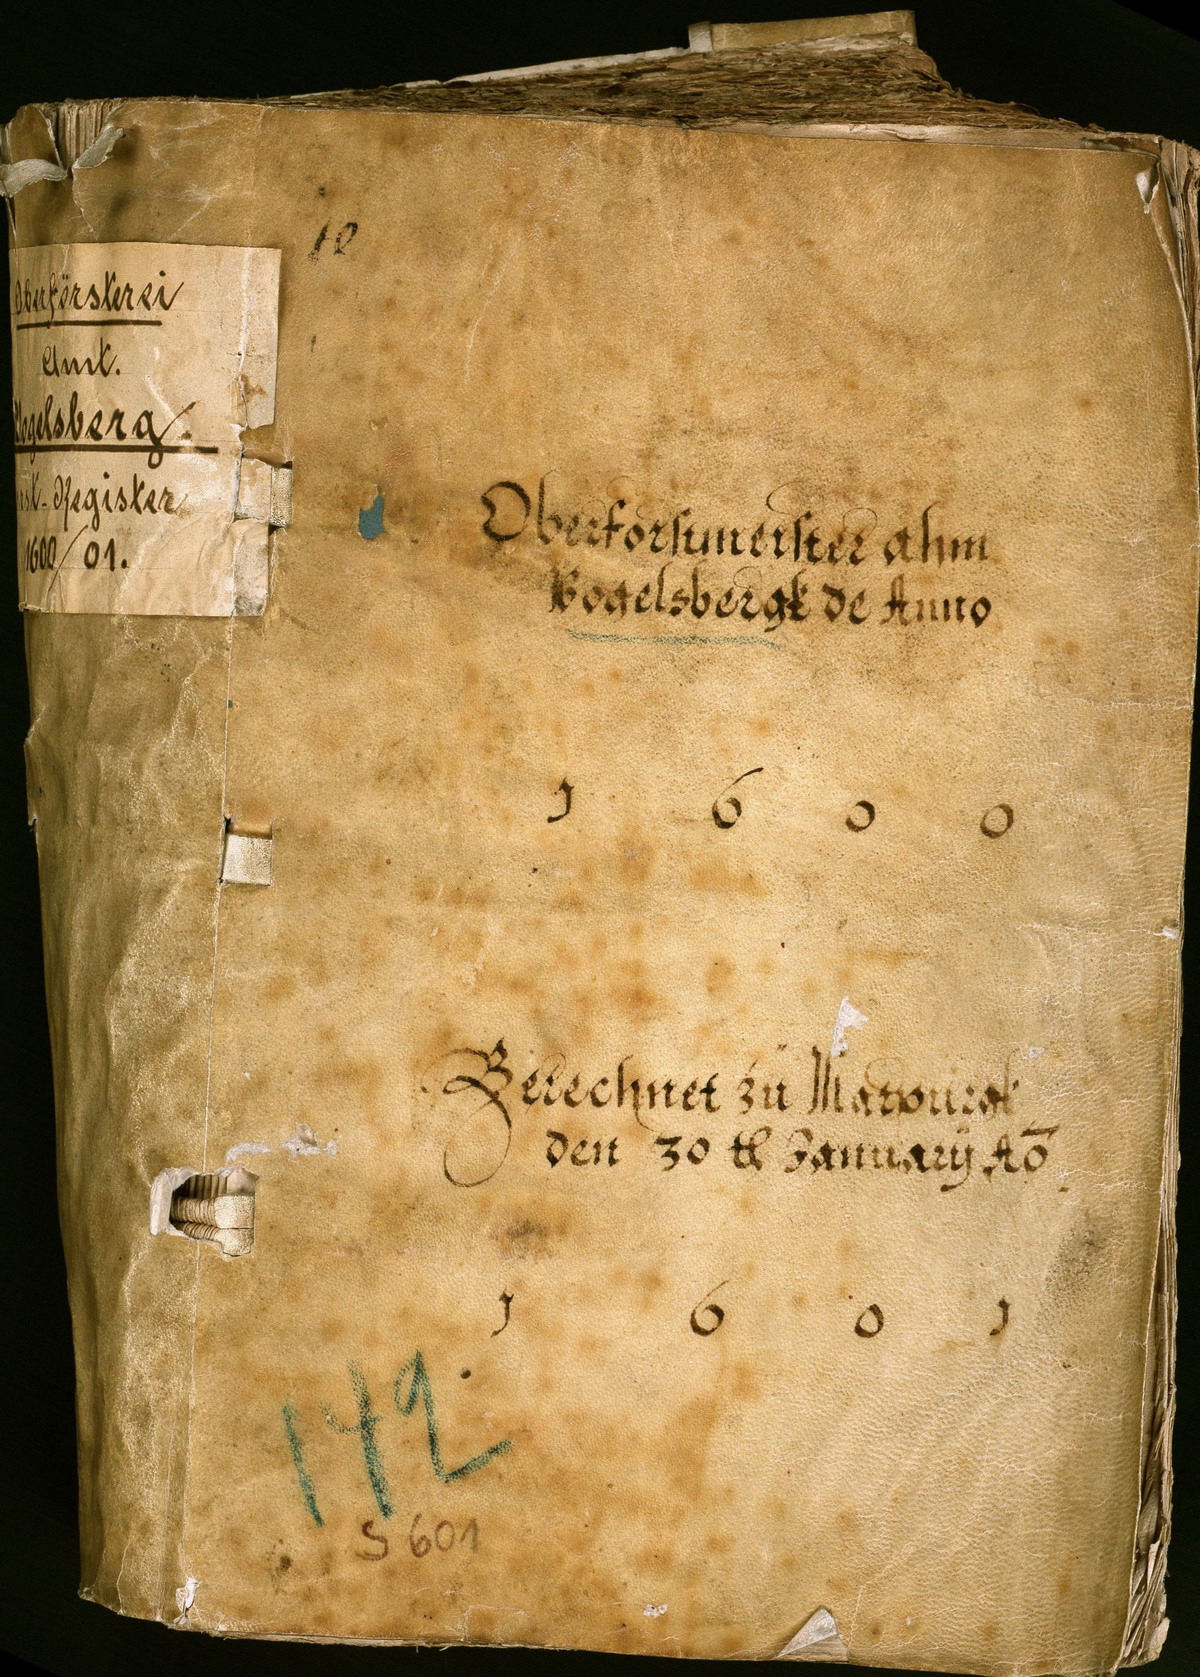 10
Oberförsterei
Amt.
Vogelsberg.
Forst-Register
1600/01.
Oberforstmeister ahm
Vogelsbergk de Anno
1 6 0 0
Berechnet zü Marpurgk
den 30 tl January Aõ
1 6 0 1
142
S 601